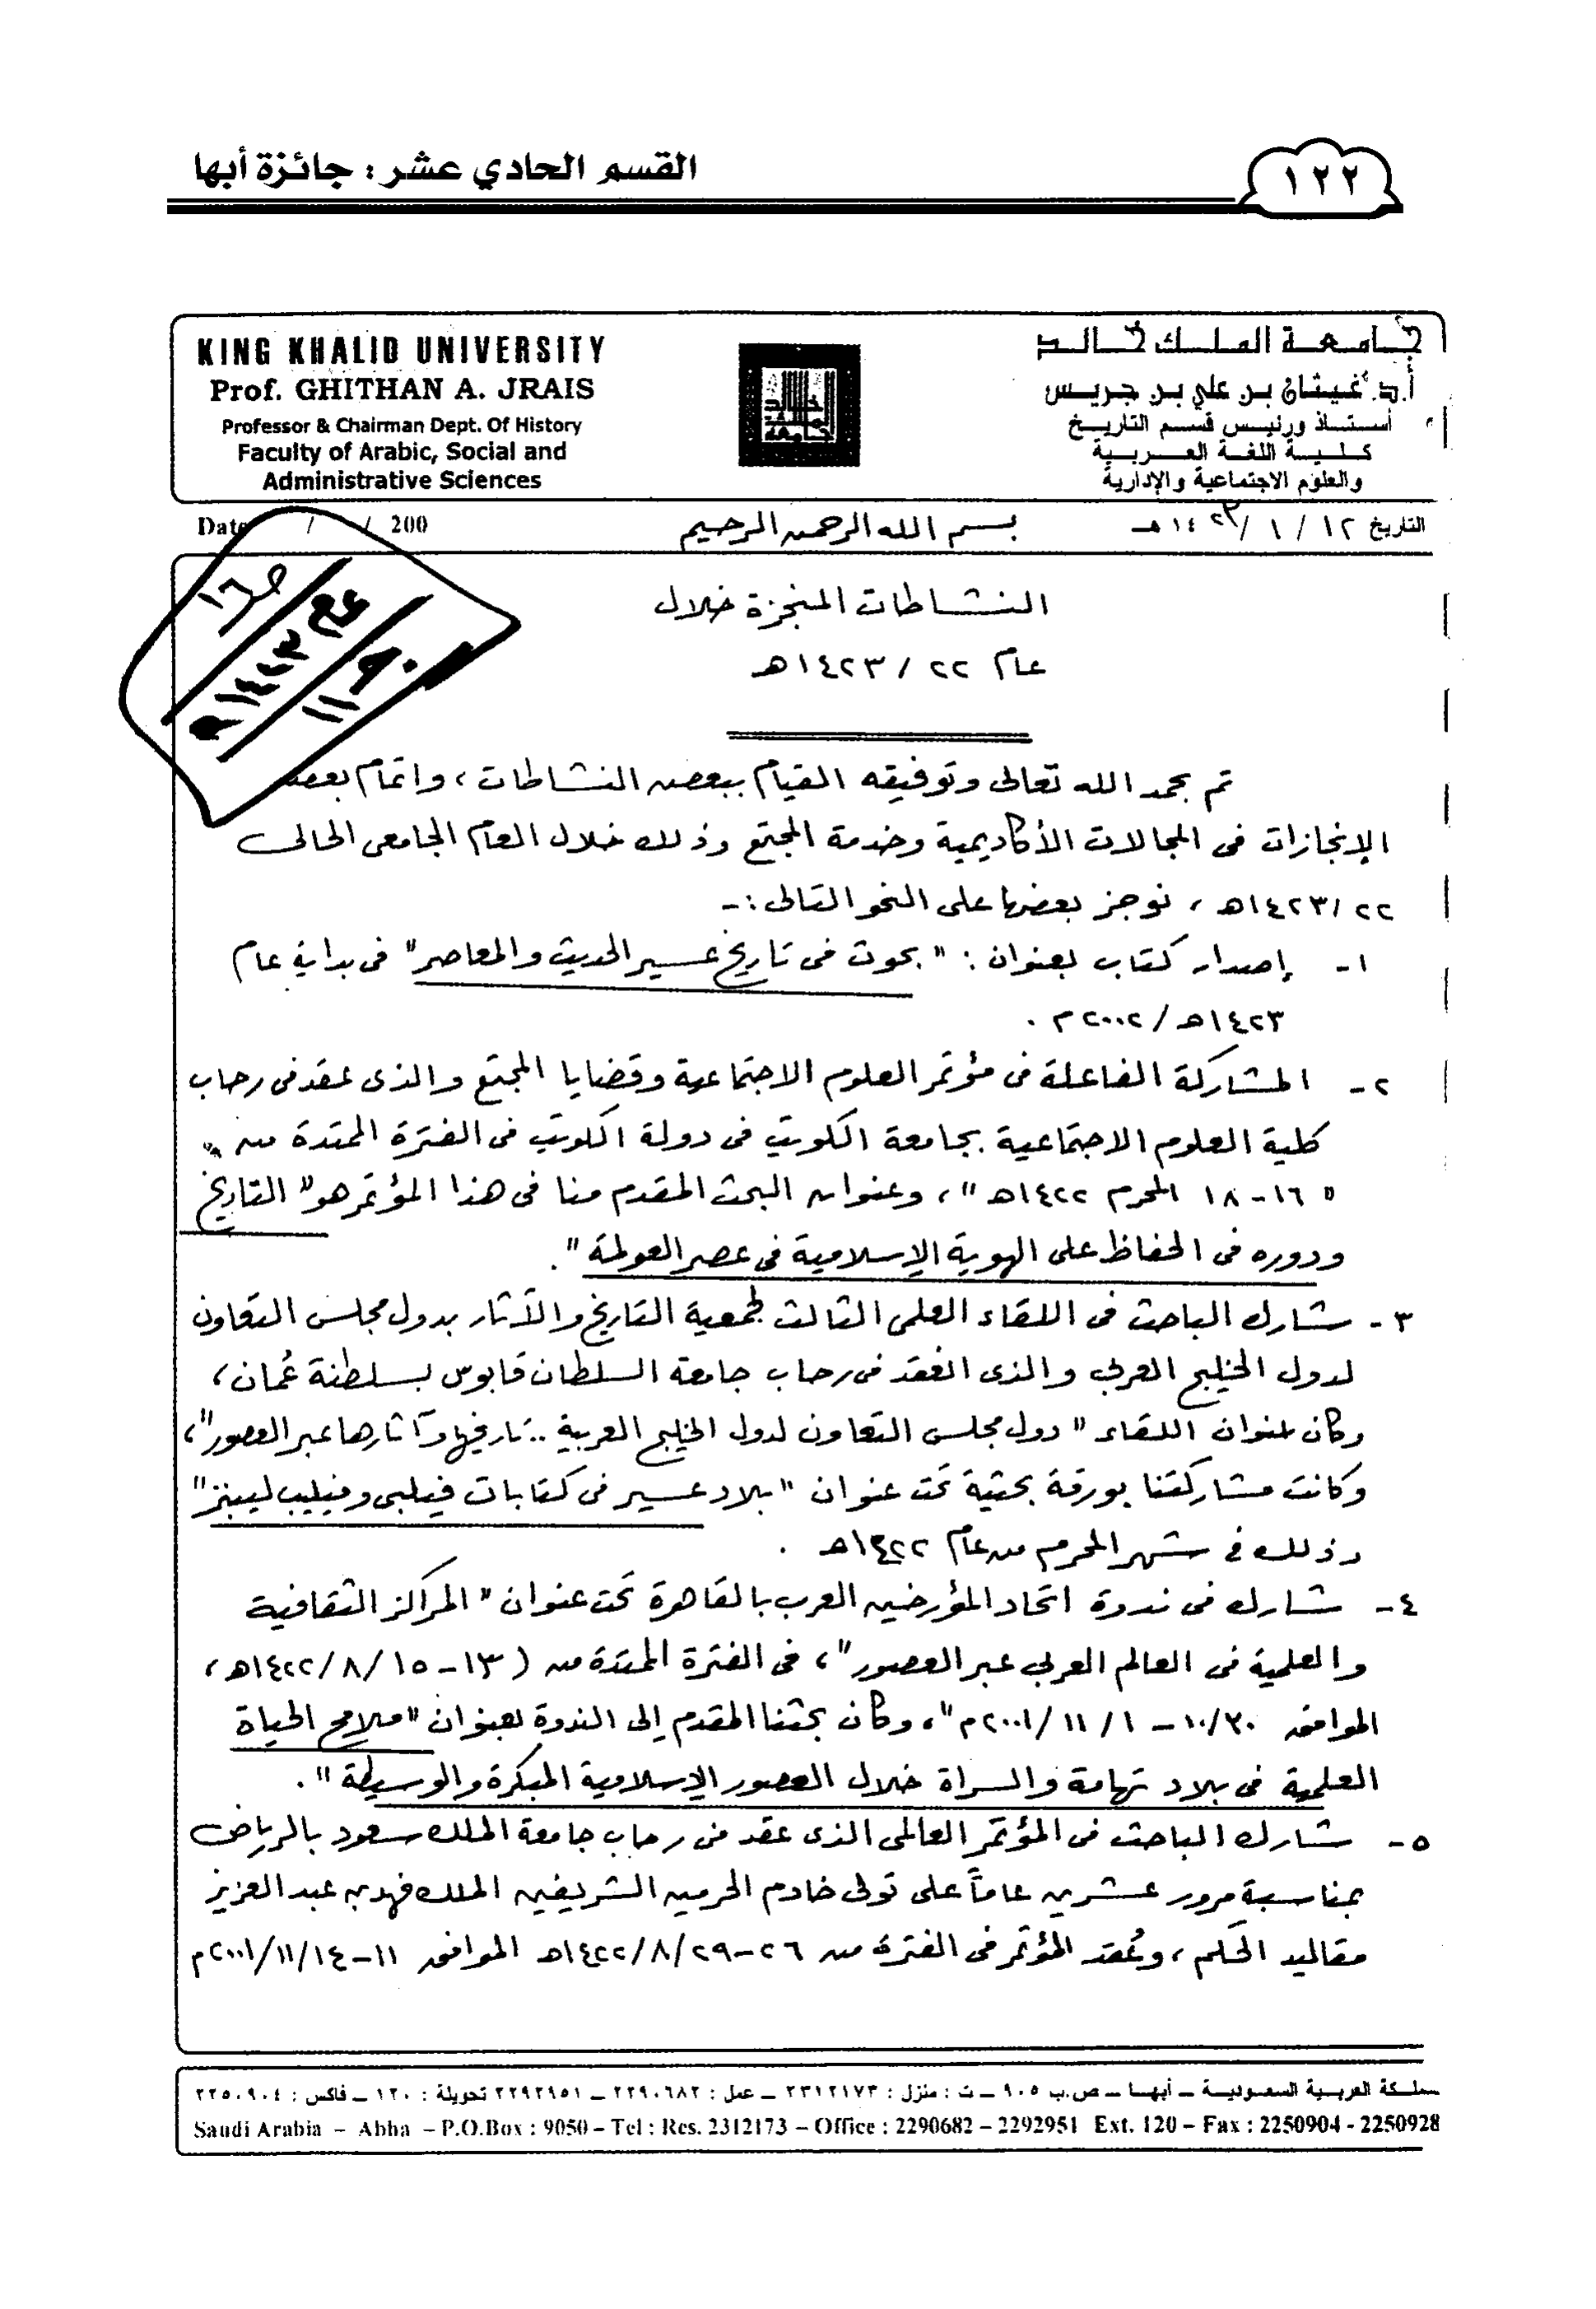 القسم الحادي عشر : جائزة أبها
١٢٢
KING KHALID UNIVERSITY
Prof. GHITHAN A. JRAIS
Professor & Chairman Dept. Of History
Faculty of Arabic, Social and
Administrative Sciences
جامعة الملك خالد
أ.د. غيثان بن علي بن جريس
أستاذ ورئيس قسم التاريخ
كلية اللغة العربية
والعلوم الاجتماعية والإدارية
التاريخ ١٢ / ١ / ١٤٢٣ هـ
بسم الله الرحمن الرحيم
Date / / 200
النشاطات المنجزة خلال
عام ٢٢ / ١٤٢٣هـ
تم بحمد الله تعالى وتوفيقه القيام ببعض النشاطات ، واتمام بعض
الإنجازات فى المجالات الأكاديمية وخدمة المجتمع وذلك خلال العام الجامعى الحالى
٢٢ /١٤٢٣هـ ، نوجز بعضها على النحو التالى :-
١- إصدار كتاب بعنوان : " بحوث فى تاريخ عسير الحديث والمعاصر " فى بداية عام
١٤٢٣هـ / ٢٠٠٢م .
٢- المشاركة الفاعلة فى مؤتمر العلوم الاجتماعية وقضايا المجتمع والذى عقد فى رحاب
كلية العلوم الاجتماعية بجامعة الكويت فى دولة الكويت فى الفترة الممتدة من
" ١٦-١٨ المحرم ١٤٢٢هـ " ، وعنوان البحث المقدم منا فى هذا المؤتمر هو " التاريخ
ودوره فى الحفاظ على الهوية الإسلامية فى عصر العولمة " .
٣- شارك الباحث فى اللقاء العلمى الثالث لجمعية التاريخ والآثار بدول مجلس التعاون
لدول الخليج العربي والذى انعقد فى رحاب جامعة السلطان قابوس بسلطنة عُمان ،
وكان عنوان اللقاء " دول مجلس التعاون لدول الخليج العربية .. تاريخها وآثارها عبر العصور " ،
وكانت مشاركتنا بورقة بحثية تحت عنوان " بلاد عسير فى كتابات فيلبى وفيليب ليبنز "
وذلك فى شهر المحرم من عام ١٤٢٢هـ .
٤- شارك فى ندوة اتحاد المؤرخين العرب بالقاهرة تحت عنوان " المراكز الثقافية
والعلمية فى العالم العربي عبر العصور " ، فى الفترة الممتدة من ( ١٣-١٥ /٨ /١٤٢٢هـ ،
الموافق ١٠/٣٠ – ١ / ١١ /٢٠٠١م " ، وكان بحثنا المقدم إلى الندوة بعنوان " ملامح الحياة
العلمية فى بلاد تهامة والسراة خلال العصور الإسلامية المبكرة والوسيطة " .
٥- شارك الباحث فى المؤتمر العالمى الذى عقد فى رحاب جامعة الملك سعود بالرياض
بمناسبة مرور عشرين عاماً على تولى خادم الحرمين الشريفين الملك فهد بن عبد العزيز
مقاليد الحكم ، وعُقد المؤتمر فى الفترة من ٢٦-٢٩ /٨ /١٤٢٢هـ الموافق ١١-١٤ /١١ /٢٠٠١م
ـملكة العربية السعودية ـ أبها ـ ص.ب ٩٠٥ ـ ت : منزل : ٢٣١٢١٧٣ ـ عمل : ٢٢٩٠٦٨٢ ـ ٢٢٩٢٩٥١ تحويلة : ١٢٠ ـ فاكس : ٢٢٥٠٩٠٤
Saudi Arabia – Abha – P.O.Box : 9050 – Tel : Res. 2312173 – Office : 2290682 – 2292951 Ext. 120 – Fax : 2250904 - 2250928